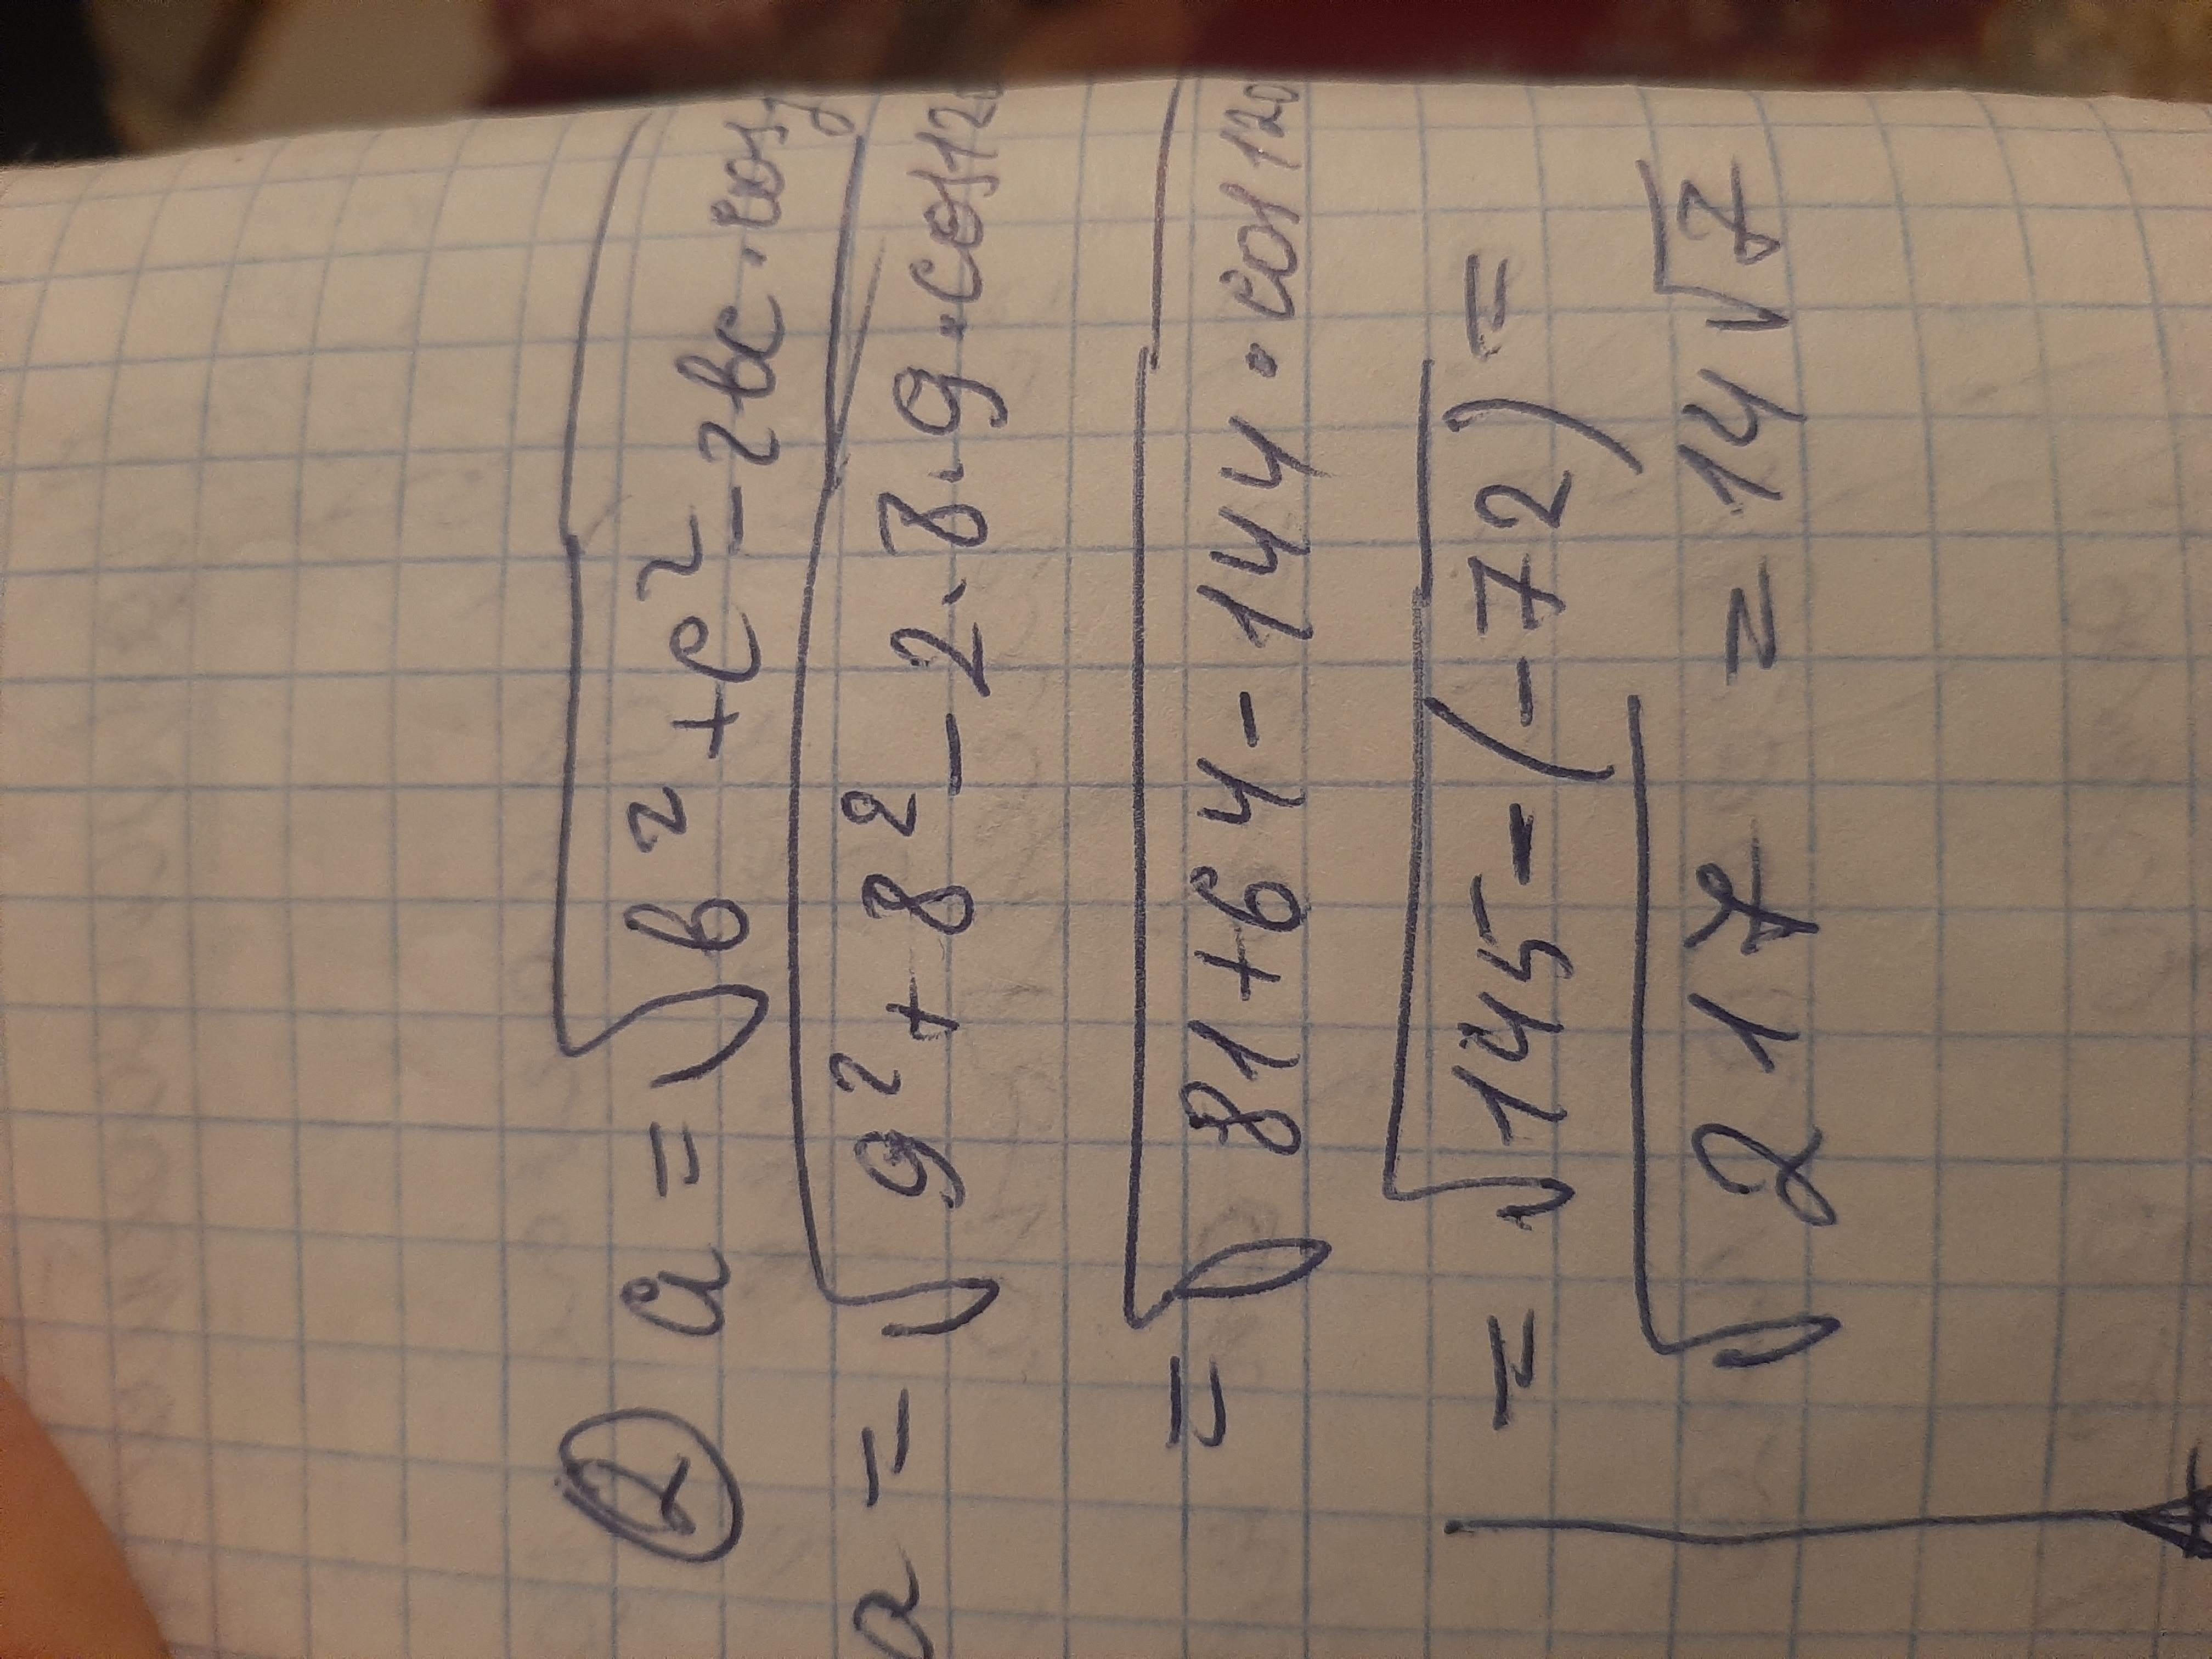 ② a = √b² + c² - 2bc · cos
a = √9² + 8² - 2 · 8 · 9 · cos 120
= √81 + 64 - 144 · cos 120
= √145 - (-72) =
√217 = 14√7